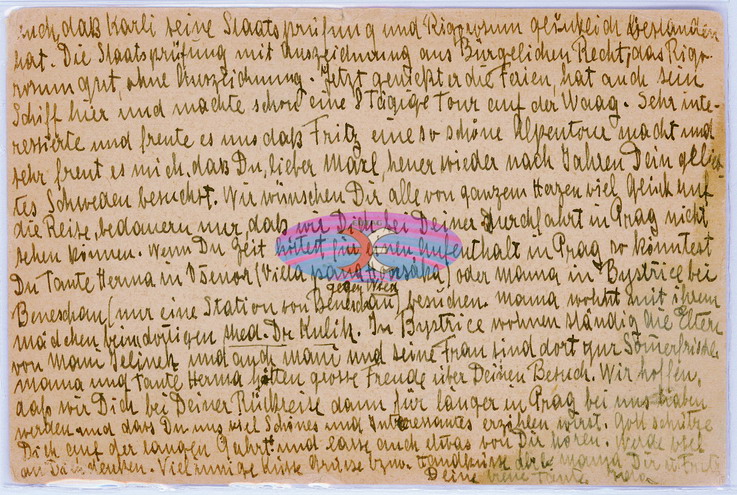 auch, daß Karli seine Staatsprüfung und Rigorosum glücklich bestanden
hat. Die Staatsprüfung mit Auszeichnung aus Bürgelichen Recht, das Rigo-
rosum gut, ohne Auszeichnung. Jetzt genießt er die Ferien, hat auch sein
Schiff hier und machte schon eine 8 Tägige Tour auf der Waag. Sehr inte-
ressierte und freute es uns daß Fritz eine so schöne Alpentour macht und
sehr freut es mich, daß Du, lieber Marl, heuer wieder nach Jahren Dein gelieb-
tes Schweden besuchst. Wir wünschen Dir alle von ganzem Herzen viel Glück auf
die Reise, bedauern nur, daß wir Dich bei Deiner Durchfahrt in Prag nicht
sehen können. Wenn Du Zeit hättest für einen Aufenthalt in Prag so könntest
Du Tante Herma in Všenor (Villa gegenüber) oder mama in Bystřice bei
Beneschau (nur eine Station von Beneschau) besuchen. mama wohnt mit ihrem
mädchen beim dortigen med. Dr. Kulik. In Bystřice wohnen ständig die Eltern
von Mann Jelinek und auch mani und seine Frau sind dort zur Sommerfrische.
mama und Tante Herma hätten grosse Freude über Deinen Besuch. Wir hoffen,
daß wir Dich bei Deiner Rückreise dann für länger in Prag bei uns haben
werden und daß Du uns viel Schönes und Interesantes erzählen wirst. Gott schütze
Dich auf der langen Fahrt und lasse auch etwas von Dir hören. Werde viel
an Dich denken. Viel innige Küsse Grüsse bzw. Handküsse mama, Dir u. Fritz
Deine Tante